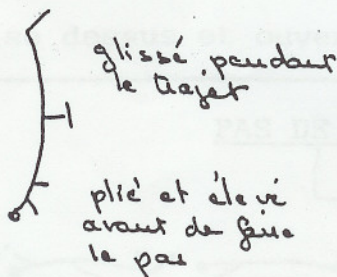 glissé pendant
le trajet
plié et élevé
avant de faire
le pas